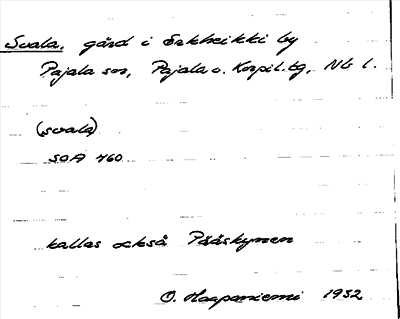 Svala, gård i Erkheikki by
Pajala sn, Pajala o. Korpil. tg, Nb l.
(svala)
SOA 460
kallas också Pääskynen
O. Haapaniemi 1932